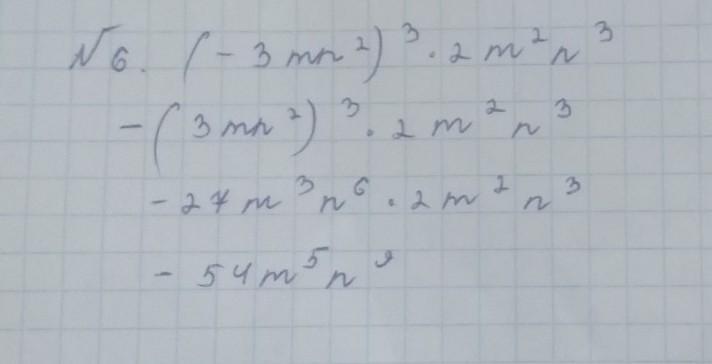 № 6. (-3mn²)³·2m²n³
-(3mn²)³·2m²n³
-27m³n⁶·2m²n³
-54m⁵n⁹